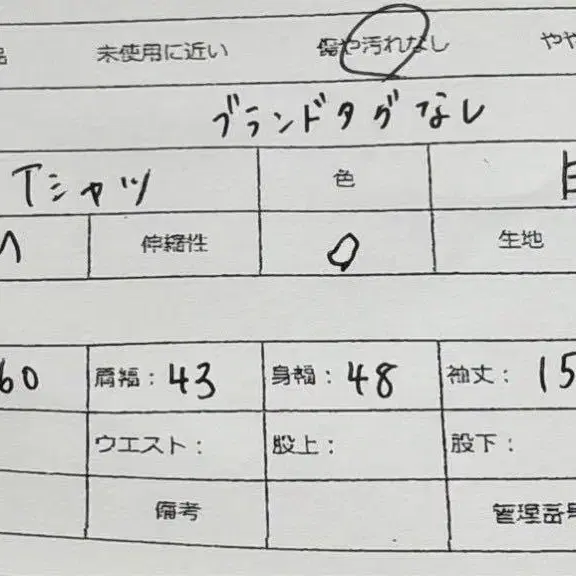 未使用に近い 傷や汚れなし やや
ブランドタグなし
Tシャツ 色
伸縮性 生地
60 肩幅：43 身幅：48 袖丈：15
ウエスト： 股上： 股下：
備考 管理番号